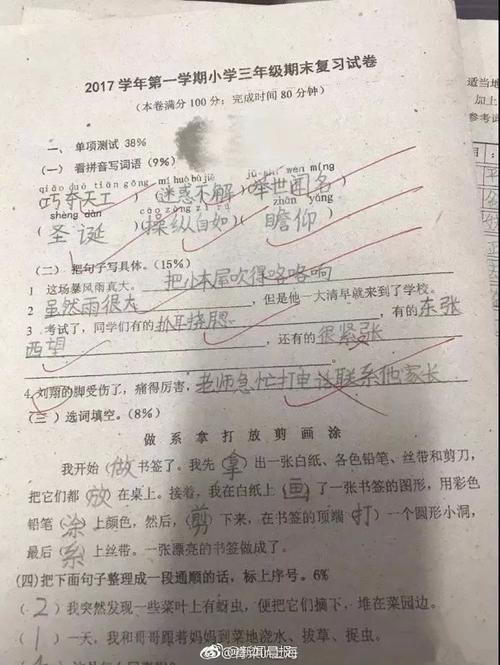 2017学年第一学期小学三年级期末复习试卷
(本卷满分100分;完成时间80分钟)
一、单项测试 38%
(一) 看拼音写词语 (9%)
qiǎo duó tiān gōng mí huò bù jiě jǔ shì wén míng
(巧夺天工)(迷惑不解)(举世闻名)
shèng dàn cāo zòng zì rú zhān yǎng
(圣诞)(操纵自如)(瞻仰)
(二) 把句子写具体。(15%)
1 这场暴风雨真大。把小木屋吹得咯咯响
2 虽然雨很大,但是他一大清早就来到了学校。
3 考试了,同学们有的抓耳挠腮,有的东张
西望,还有的很紧张
4.刘翔的脚受伤了,痛得厉害,老师急忙打电话联系他家长
(三) 选词填空。(8%)
做 系 拿 打 放 剪 画 涂
我开始(做)书签了。我先(拿)出一张白纸、各色铅笔、丝带和剪刀,
把它们都(放)在桌上。接着,我在白纸上(画)了一张书签的图形,用彩色
铅笔(涂)上颜色,然后,(剪)下来,在书签的顶端(打)一个圆形小洞,
最后(系)上丝带。一张漂亮的书签做成了。
(四) 把下面句子整理成一段通顺的话,标上序号。6%
(2)我突然发现一些菜叶上有蚜虫,便把它们摘下,堆在菜园边。
(1)一天,我和哥哥跟着妈妈到菜地浇水、拔草、捉虫。
适当地
加上
参考词